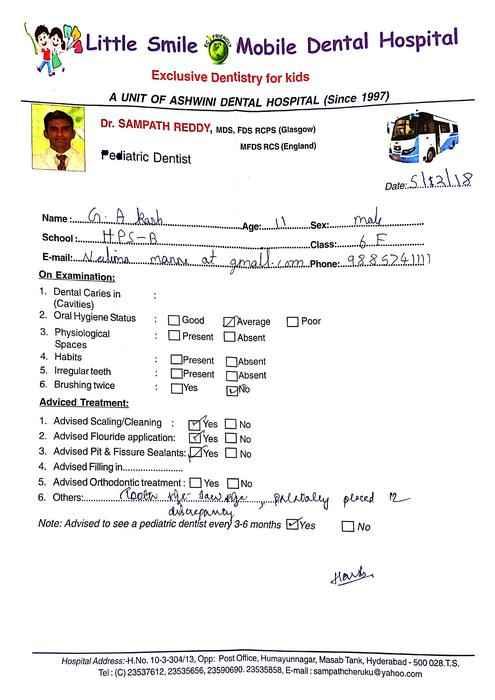 Little Smile Mobile Dental Hospital
ECO FRIENDLY
Exclusive Dentistry for kids
A UNIT OF ASHWINI DENTAL HOSPITAL (Since 1997)
Dr. SAMPATH REDDY, MDS, FDS RCPS (Glasgow)
MFDS RCS (England)
Pediatric Dentist
Date: 5/12/18
Name: G. Akash Age: 11 Sex: male
School: HPS-B Class: 6 F
E-mail: manne at gmail.com Phone: 9885241111
On Examination:
1. Dental Caries in :
(Cavities)
2. Oral Hygiene Status : Good Average Poor
3. Physiological : Present Absent
Spaces
4. Habits : Present Absent
5. Irregular teeth : Present Absent
6. Brushing twice : Yes No
Adviced Treatment:
1. Advised Scaling/Cleaning : Yes No
2. Advised Flouride application: Yes No
3. Advised Pit & Fissure Sealants: Yes No
4. Advised Filling in......................
5. Advised Orthodontic treatment : Yes No
6. Others: Tooth size - Jaw size, palatally placed 2
discrepancy
Note: Advised to see a pediatric dentist every 3-6 months Yes No
Hospital Address:-H.No. 10-3-304/13, Opp: Post Office, Humayunnagar, Masab Tank, Hyderabad - 500 028.T.S.
Tel : (C) 23537612, 23535656, 23590690. 23535858, E-mail : sampathcheruku@yahoo.com